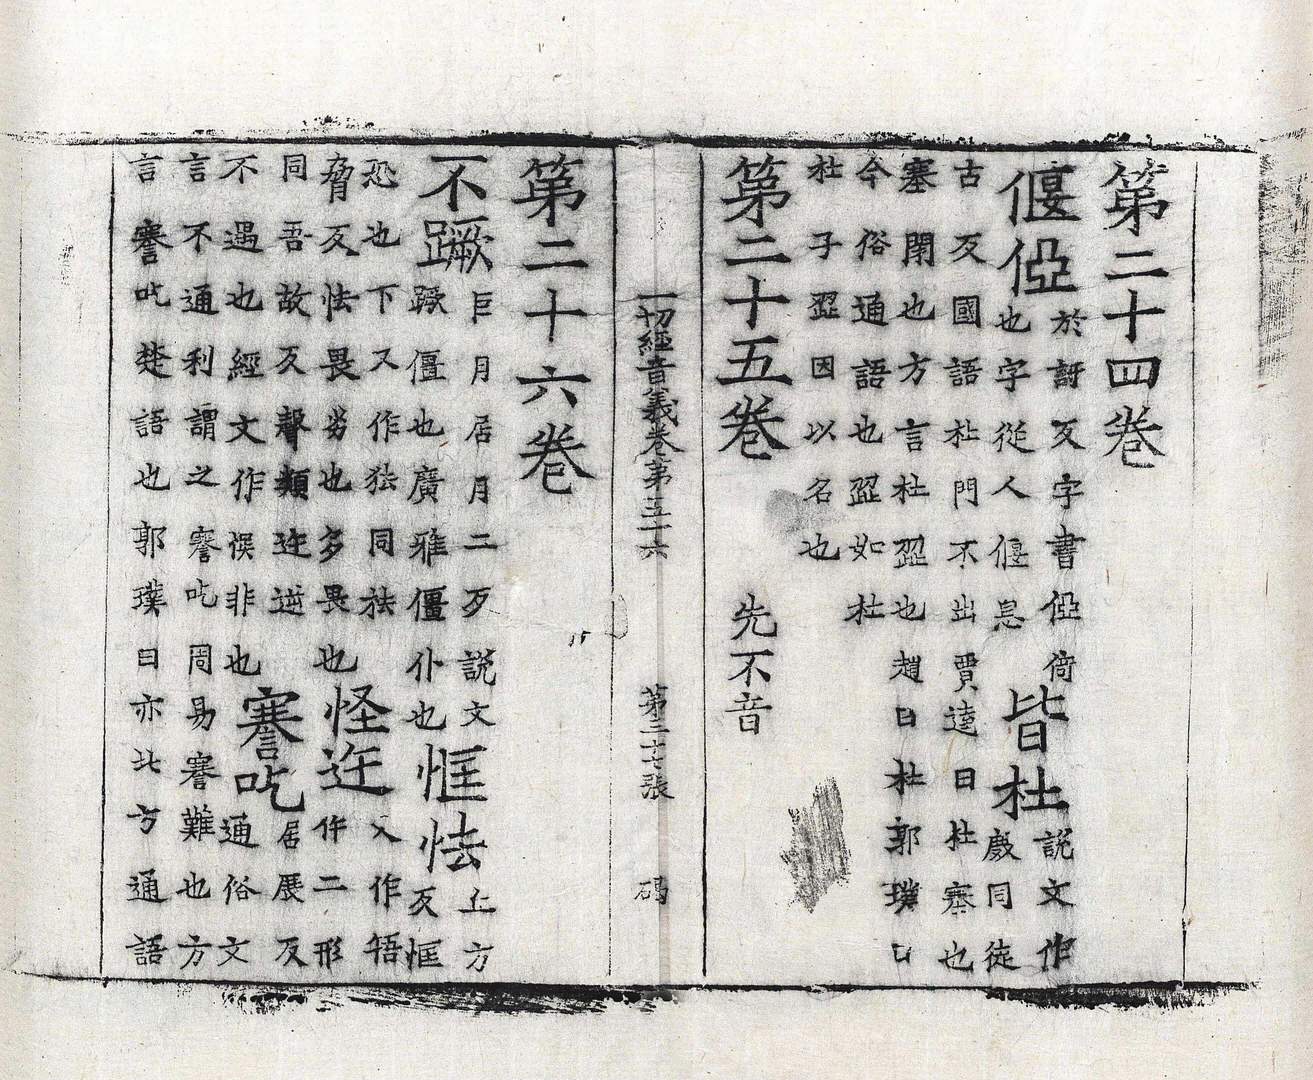 第二十四卷
偃俹
於訝反字書俹倚
也字從人偃息
皆杜
說文作
戯同徒
古反國語杜門不出賈逵曰杜塞也
塞閇也方言杜歰也趙曰杜郭璞曰
今俗通語也歰如杜
杜子歰因以名也
第二十五卷 先不音
一切經音義卷第五十六 第三十七張 碼
第二十六卷
不蹶
巨月居月二反說文
蹶僵也廣雅僵仆也
恇怯
上方
反恇
恐也下又作㹤同祛
脅反怯畏劣也多畏也
怪迕
又作啎
仵二形
同吾故反聲類迕逆
不遇也經文作悮非也
謇吃
居展反
通俗文
言不通利謂之謇吃周易謇難也方
言謇吃楚語也郭璞曰亦北方通語